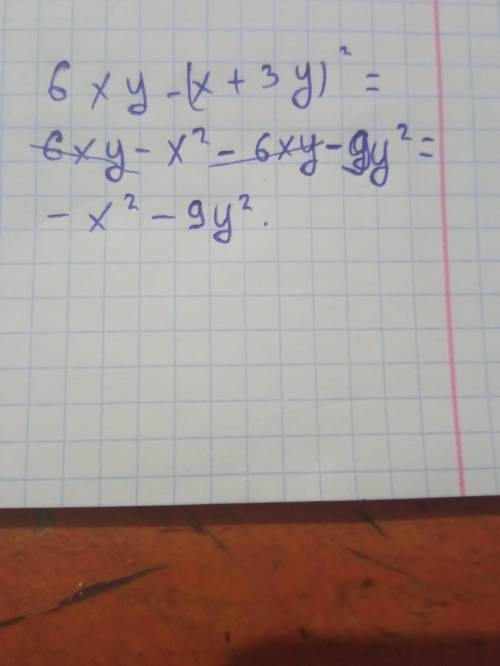 6xy - (x + 3y)² =
6xy - x² - 6xy - 9y² =
- x² - 9y².